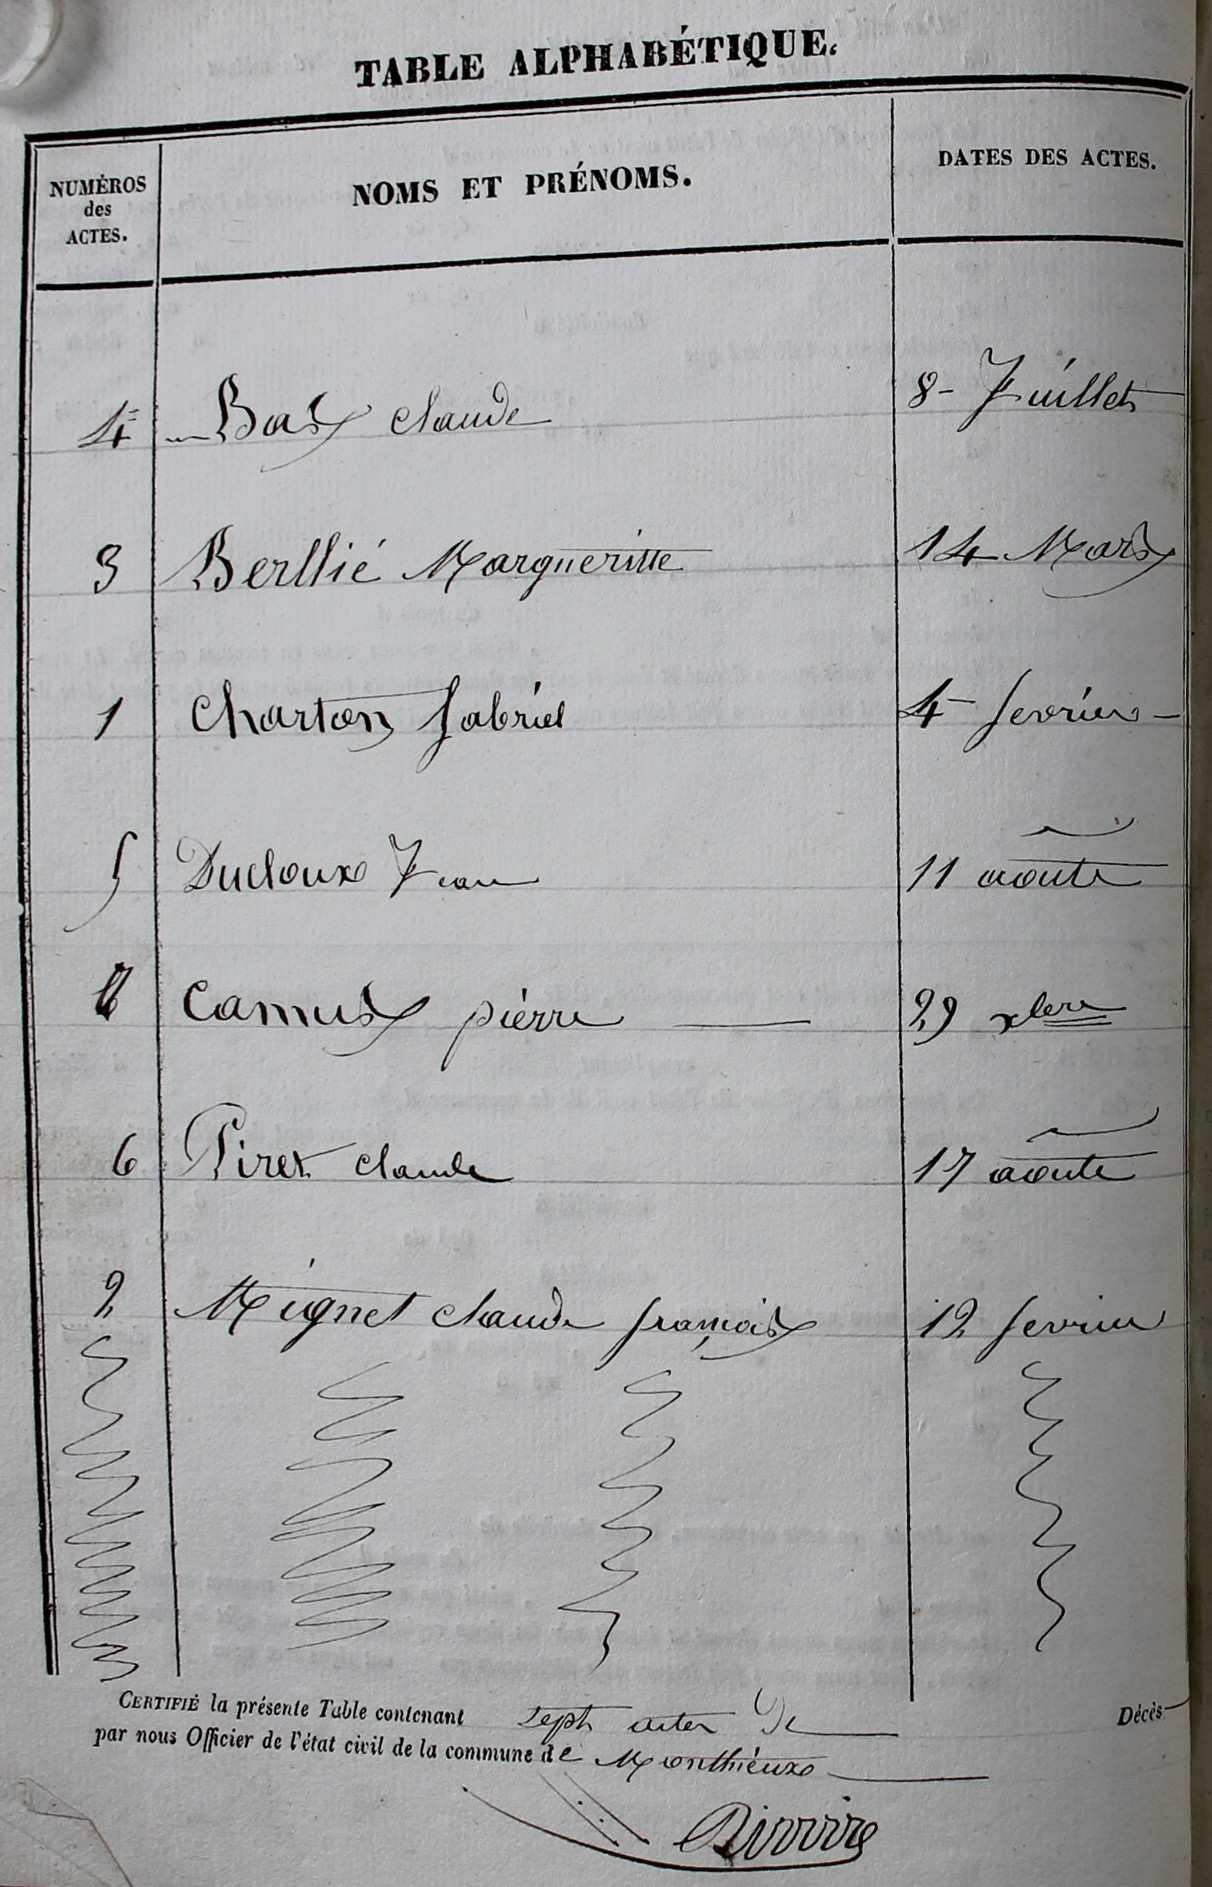 TABLE ALPHABÉTIQUE.
NUMÉROS des ACTES. NOMS ET PRÉNOMS. DATES DES ACTES.
4 Bas claude 8 Juillet
3 Berllié Margueritte 14 Mars
1 Charton gabriel 4 fevrier
5 Ducloux Jean 11 aoute
7 Camus pierre 29 xbere
6 Piret claude 17 aoute
2 Mignet claude françois 12 fevrier
CERTIFIÉ la présente Table contenant sept actes De Décès
par nous Officier de l'état civil de la commune de Monthieux